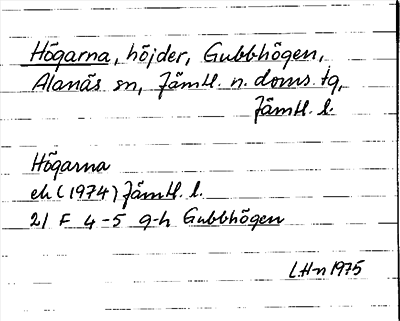 Högarna, höjder, Gubbhögen,
Alanäs sn, Jämtl. n. doms. tg,
Jämtl. l.
Högarna
ek (1974) Jämtl. l.
21 F 4-5 g-h Gubbhögen
LHn 1975